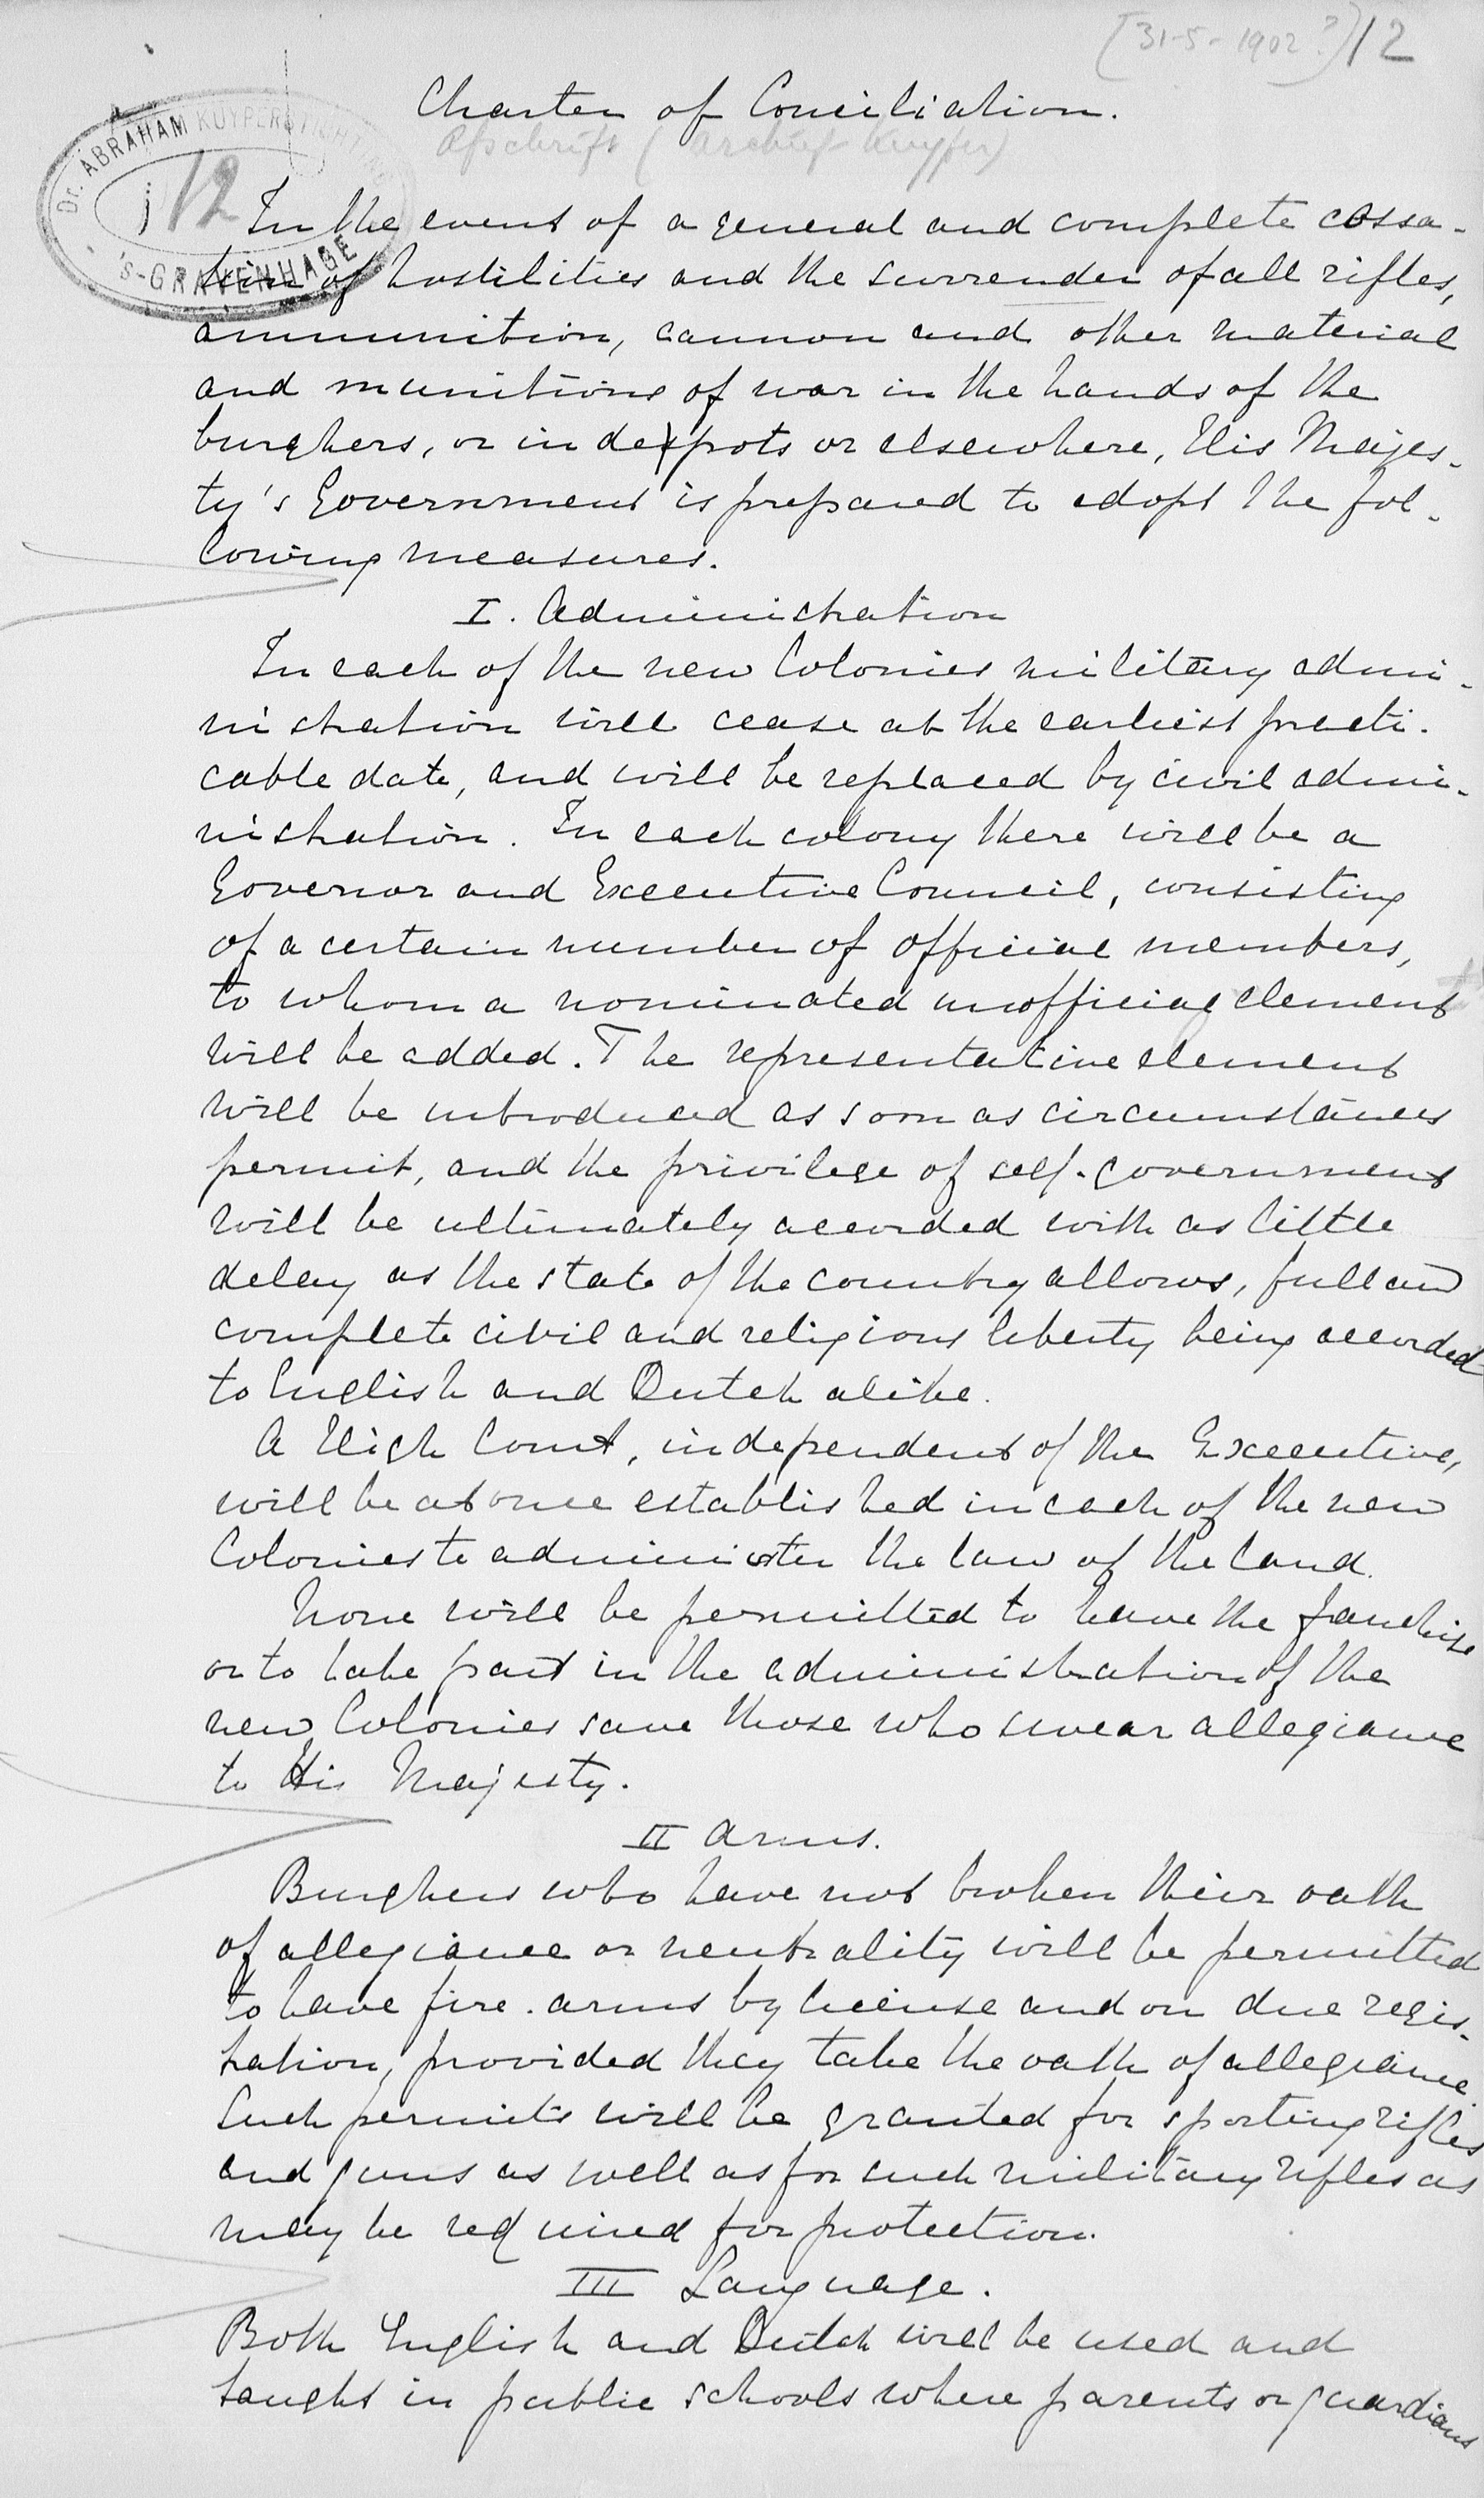 [31-5-1902?] 12
Charter of Conciliation.
Afschrift (Archief Kuyper)
Dr. ABRAHAM KUYPERSTICHTING
j 12
'S-GRAVENHAGE
In the event of a general and complete cessa-
tion of hostilities and the surrender of all rifles,
ammunition, cannon and other material
and munitions of war in the hands of the
burghers, or in depots or elsewhere, His Majes-
ty's Government is prepared to adopt the fol-
lowing measures.
I. Administration
In each of the new Colonies military admi-
nistration will cease at the earliest practi-
cable date, and will be replaced by civil admi-
nistration. In each colony there will be a
Governor and Executive Council, consisting
of a certain number of official members,
to whom a nominated unofficial element
will be added. The representative element
will be introduced as soon as circumstances
permit, and the privilege of self-government
will be ultimately accorded with as little
delay as the state of the country allows, full and
complete civil and religious liberty being accorded
to English and Dutch alike.
A High Court, independent of the Executive,
will be at once established in each of the new
Colonies to administer the law of the land.
None will be permitted to have the franchise
or to take part in the administration of the
new Colonies save those who swear allegiance
to His Majesty.
II Arms.
Burghers who have not broken their oath
of allegiance or neutrality will be permitted
to have fire-arms by license and on due regis-
tration, provided they take the oath of allegiance.
Such permits will be granted for sporting rifles
and guns as well as for such military rifles as
may be required for protection.
III Language.
Both English and Dutch will be used and
taught in public schools where parents or guardians